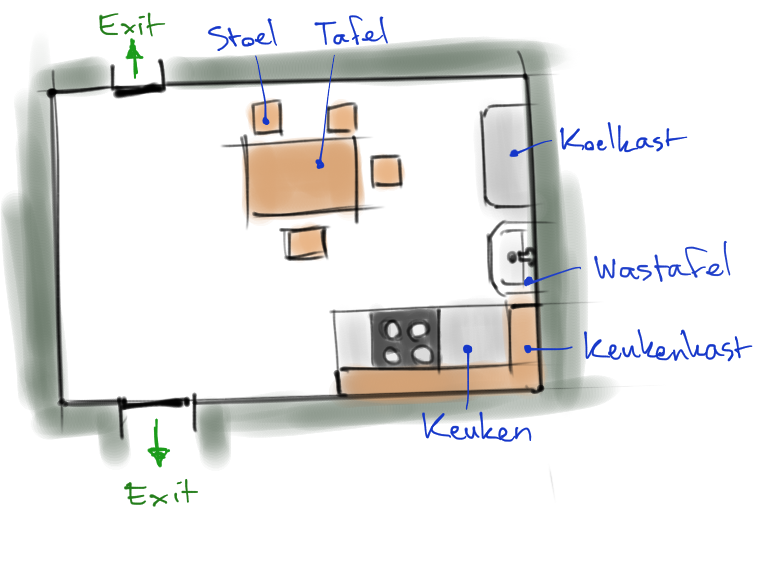 Exit
Stoel
Tafel
Koelkast
Wastafel
Keukenkast
Keuken
Exit